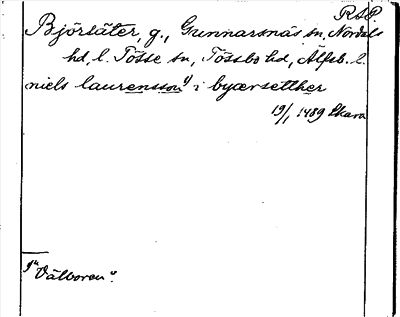 RSP.
Björsäter, g., Gunnarsnäs sn, Nordals
hd, l. Tösse sn, Tössbo hd, Älfsb. l.
niels laurensson 1) i byærsetther
19/1 1489 Skara
1) "Välboren".